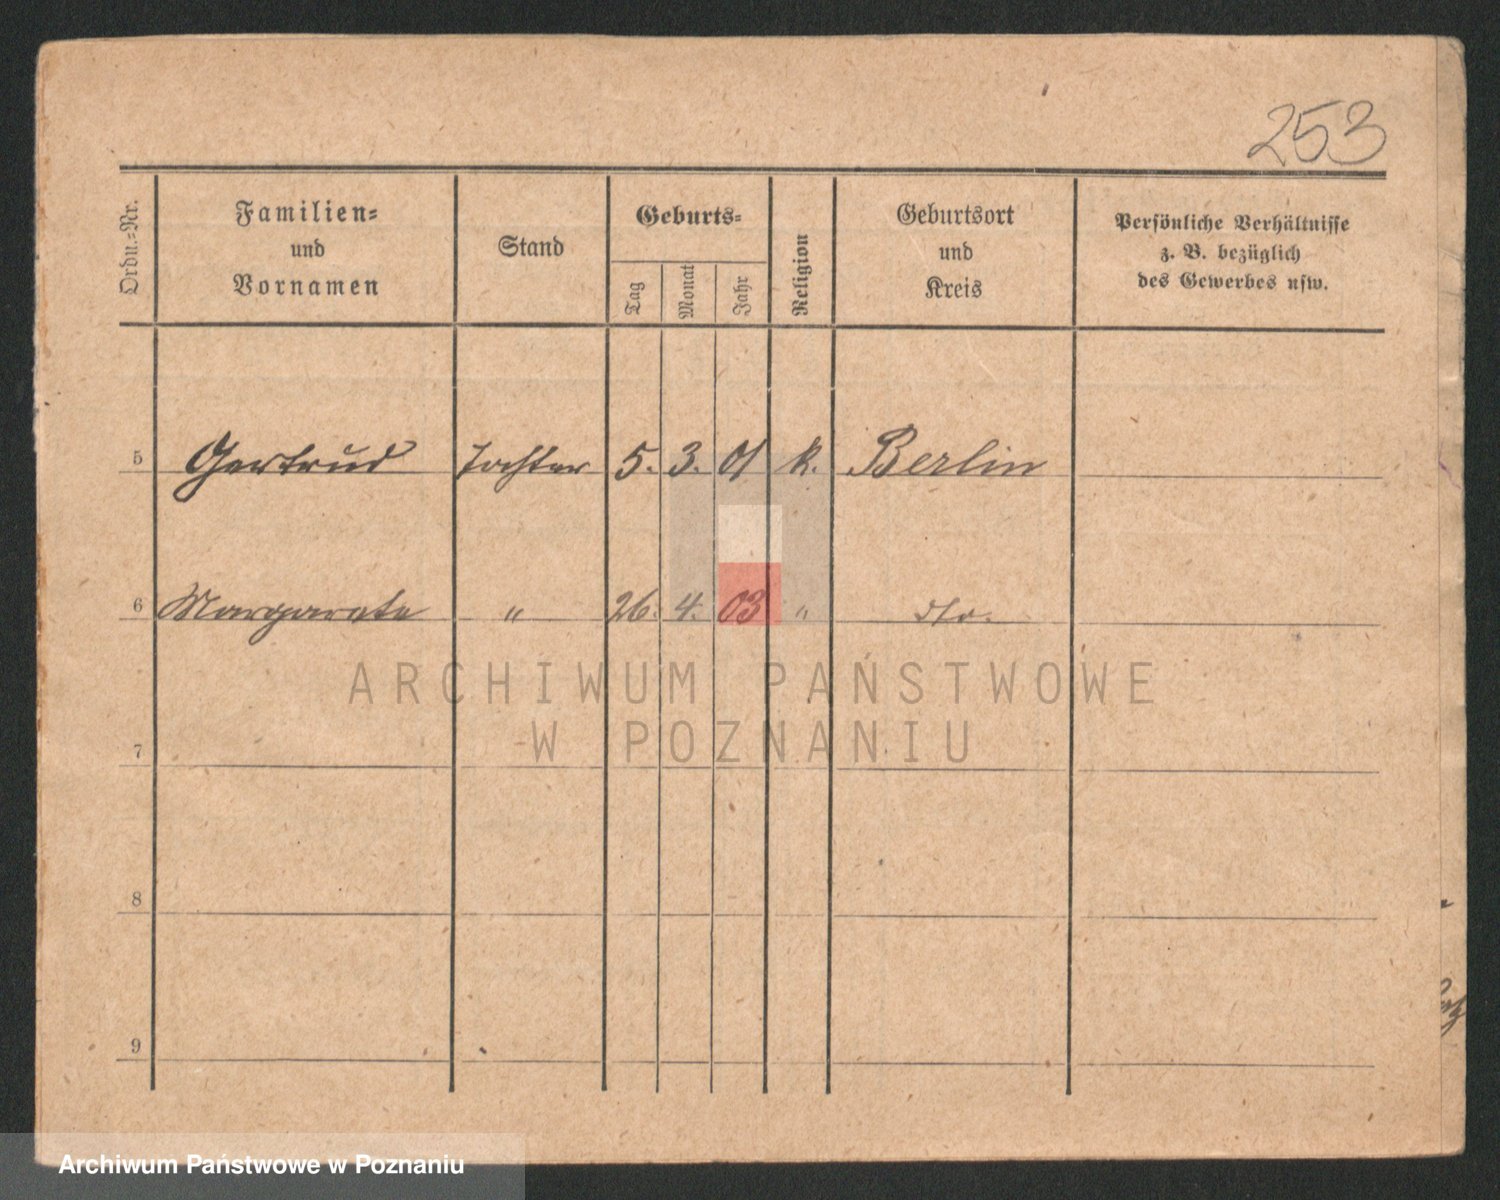 253
Ordn.-Nr.
Familien-
und
Vornamen
Stand
Geburts-
Tag
Monat
Jahr
Religion
Geburtsort
und
Kreis
Persönliche Verhältnisse
z. B. bezüglich
des Gewerbes usw.
5 Gertrud Tochter 5. 3. 01 k. Berlin
6 Margarete " 26. 4. 03 " dto.
ARCHIWUM PAŃSTWOWE
W POZNANIU
7
8
9
Archiwum Państwowe w Poznaniu